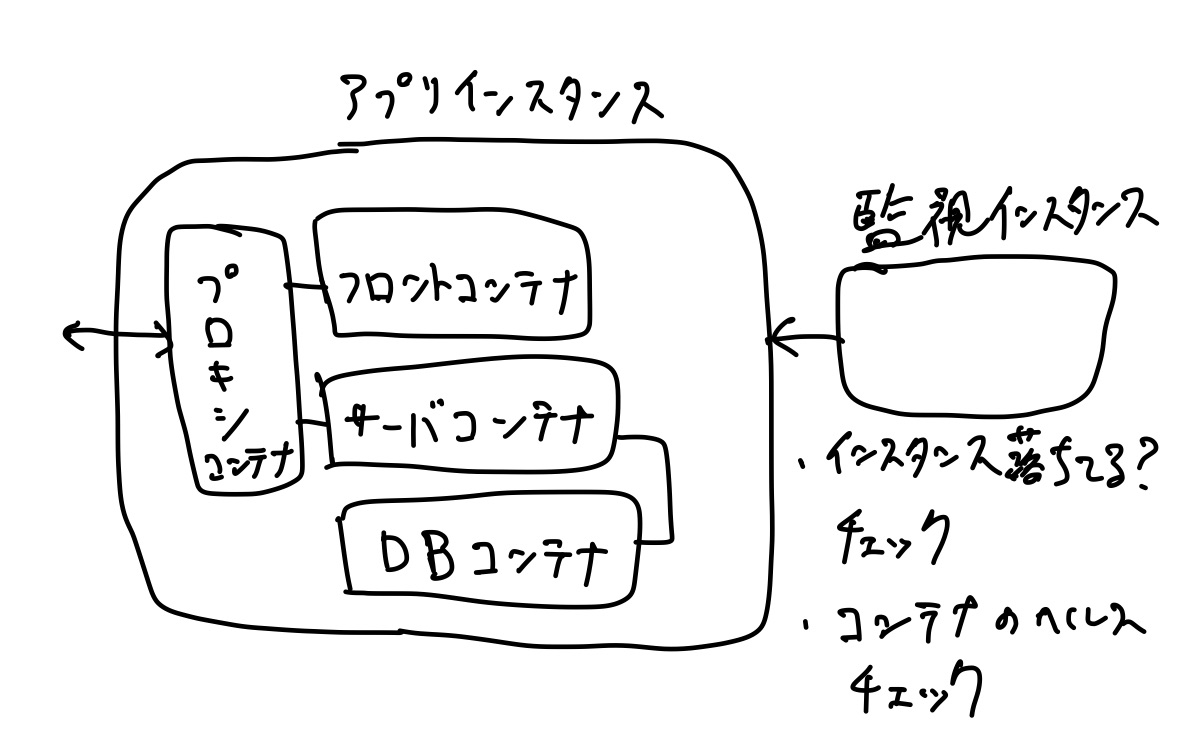 アプリインスタンス
プロキシ
コンテナ
フロントコンテナ
サーバコンテナ
DBコンテナ
監視インスタンス
・インスタンス落ちてる?
チェック
・コンテナのヘルス
チェック